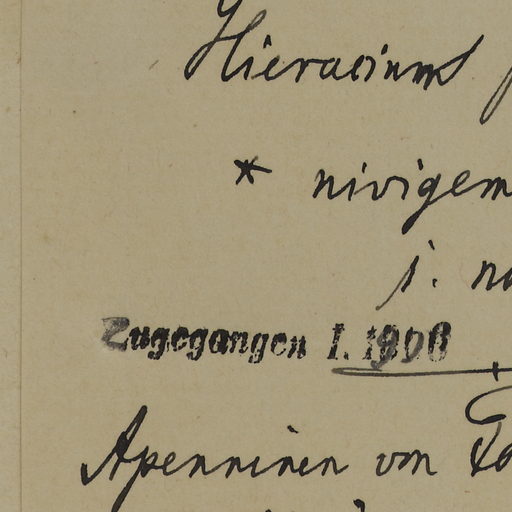 Hieracium
* nivigem
j. no
Zugegangen I. 1906
Apenninen von